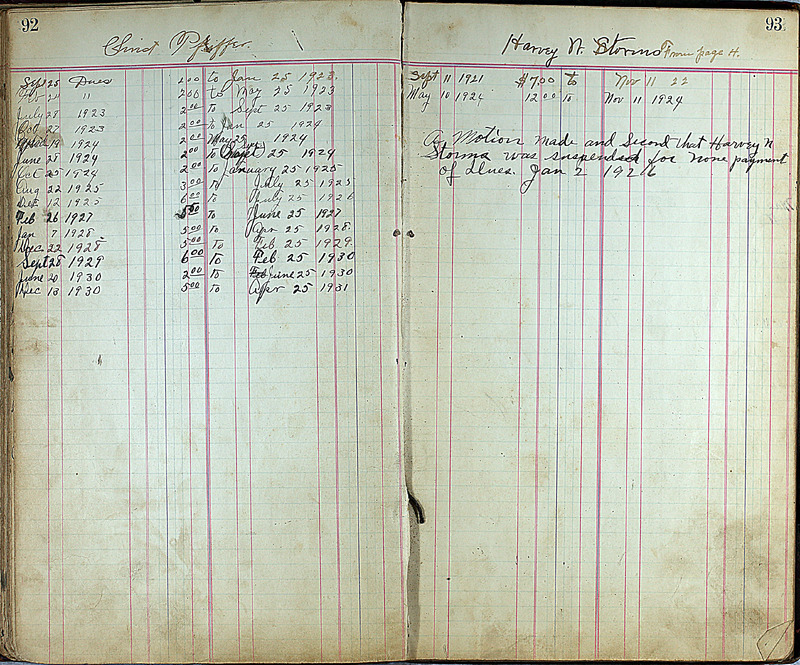 92
Christ Pfeiffer
Sept 25 Dues 2 00 to Jan 25 1923.
Feb 24 " 2 00 to May 25 1923
July 28 1923 2 00 to Sept 25 1923
Oct 27 1923 2 00 to Jan 25 1924
19 1924 2 00 May 25 1924
June 28 1924 2 00 to Sept 25 1924
Oct 25 1924 2 00 to January 25 1925
Aug 22 1925 3 00 to July 25 1925
Dec 12 1925 6 00 to July 25 1926
Feb 26 1927 5 00 to June 25 1927
Jan 7 1928 5 00 to Apr 25 1928.
Dec. 22 1928 5 00 To Feb 25 1929.
Sept 28 1929 6 00 to Feb 25 1930
June 20 1930 2 00 to June 25 1930
Dec 13 1930 5 00 to Apr 25 1931
93
Harvey N. Storms From page H.
Sept 11 1921 $7 00 to Nov 11 22
May 10 1924 12 00 to Nov 11 1924
A Motion made and Second that Harvey N
Storms was suspended for none payment
of dues. Jan 2 1926